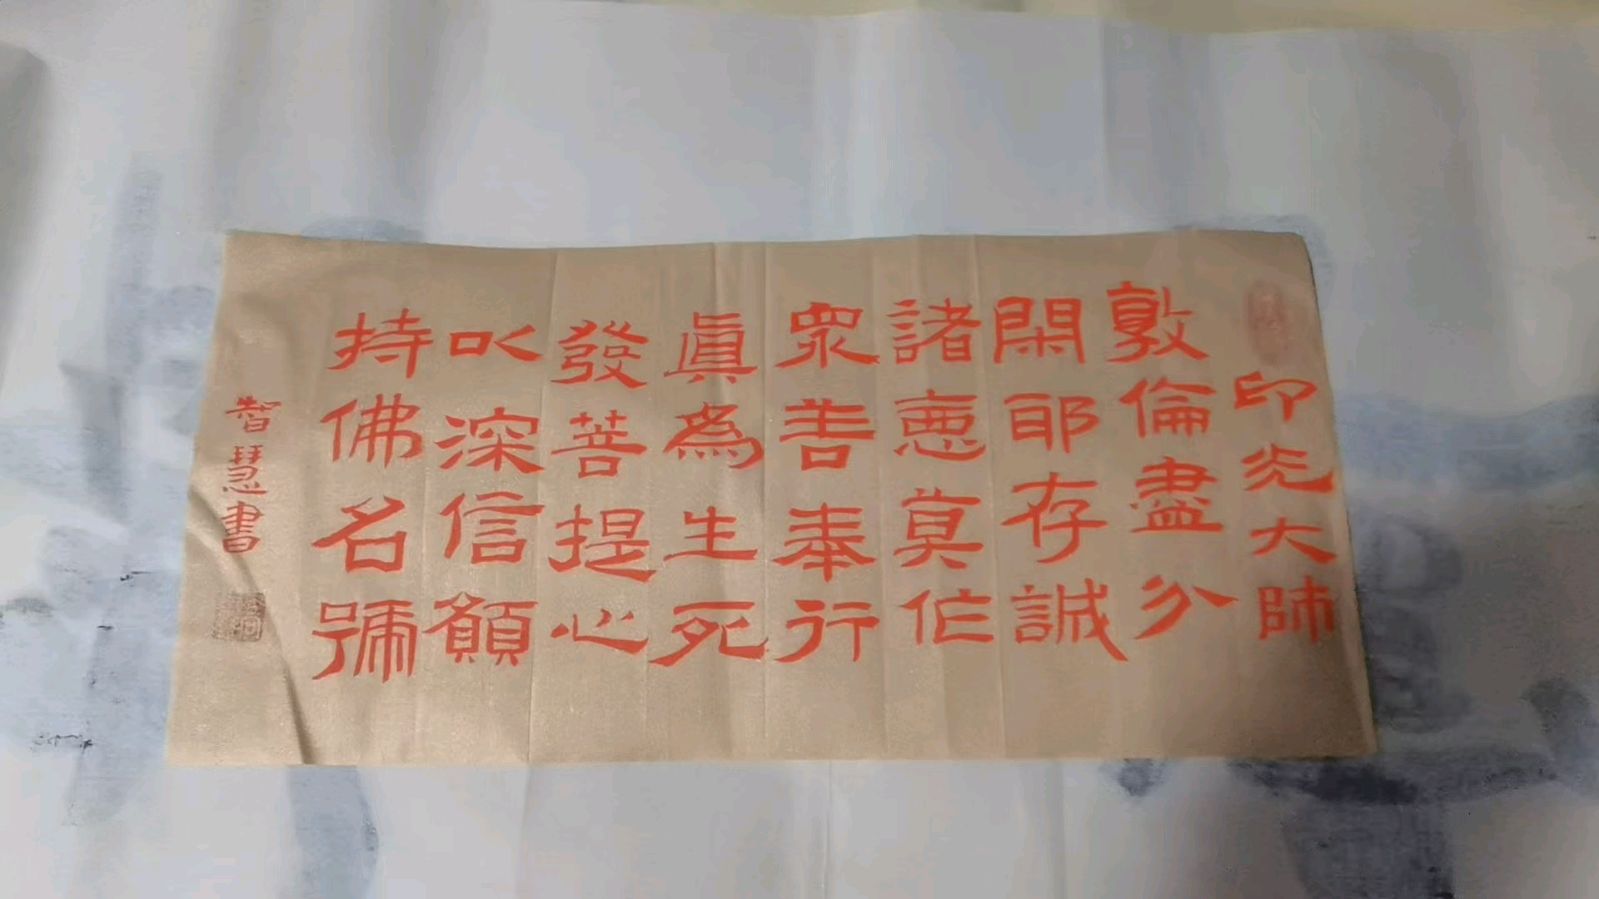 印光大師
敦倫盡分
閑邪存誠
諸惡莫作
眾善奉行
真為生死
發菩提心
以深信願
持佛名號
智慧書